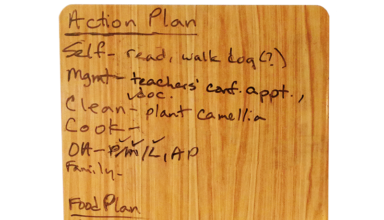 Action Plan
Self- read, walk dog(?)
Mgmt- teachers' conf. appt.,
vdoc.
Clean- plant camellia
Cook-
OH- P/M/L, AD
Family-
Food Plan